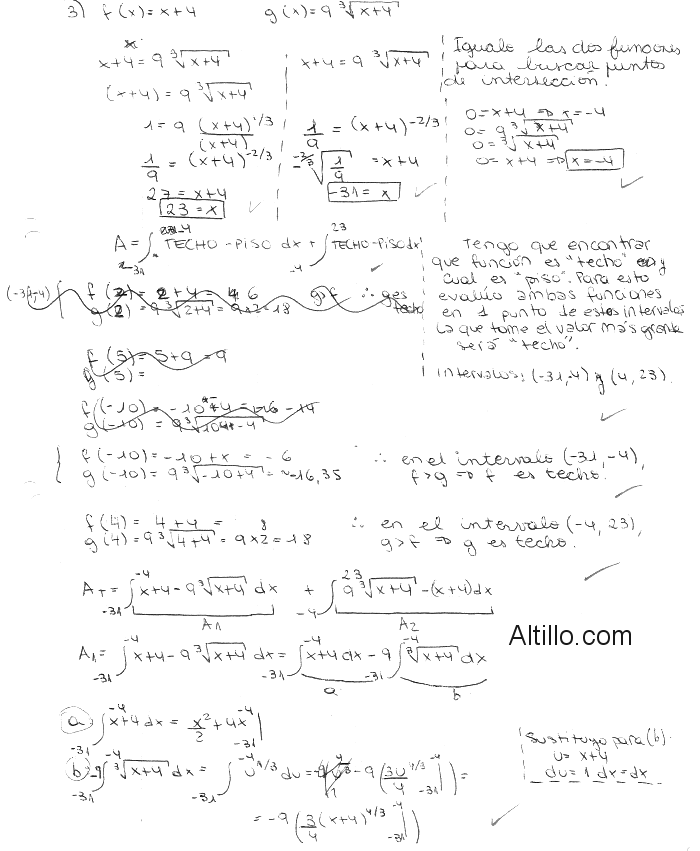 3) f(x) = x+4 g(x) = 9 ∛(x+4)
x+4 = 9 ∛(x+4)
(x+4) = 9 ∛(x+4)
1 = 9 (x+4)^1/3 / (x+4)
1/9 = (x+4)^-2/3
27 = x+4
23 = x
x+4 = 9 ∛(x+4)
1/9 = (x+4)^-2/3
-2/3√(1/9) = x+4
-31 = x
Igualo las dos funciones
para buscar puntos
de intersección.
0 = x+4 ⇒ x = -4
0 = 9 ∛(x+4)
0 = ∛(x+4)
0 = x+4 ⇒ x = -4
A = ∫_-31^-4 TECHO - PISO dx + ∫_-4^23 TECHO - PISO dx
Tengo que encontrar
que función es "techo" y
cual es "piso". Para esto
evalúo ambas funciones
en 1 punto de estos intervalos
La que tome el valor más grande
será "techo".
intervalos: (-31,4) y (4, 23).
(-31,-4) { f(2) = 2+4 = 6 g>f ∴ g es
g(2) = 9 ∛(2+4) = 9x2 = 18 techo
f(5) = 5+9 = 9
g(5) =
f(-10) = -10+4 = -14
g(-10) = 9 ∛(-10+4)
{ f(-10) = -10+x = -6 ∴ en el intervalo (-31, -4),
g(-10) = 9 ∛(-10+4) = ~-16,35 f>g ⇒ f es techo.
f(4) = 4+4 = 8 ∴ en el intervalo (-4, 23),
g(4) = 9 ∛(4+4) = 9x2 = 18 g>f ⇒ g es techo.
A_T = ∫_-31^-4 x+4 - 9 ∛(x+4) dx + ∫_-4^23 9 ∛(x+4) - (x+4) dx
A1 A2
Altillo.com
A1 = ∫_-31^-4 x+4 - 9 ∛(x+4) dx = ∫_-31^-4 x+4 dx - 9 ∫_-31^-4 ∛(x+4) dx
a b
a) ∫_-31^-4 x+4 dx = x²/2 + 4x |_-31^-4
b) -9 ∫_-31^-4 ∛(x+4) dx = ∫_-31^-4 u^1/3 du = -9 (3u^4/3 / 4 |_-31^-4) =
= -9 (3/4 (x+4)^4/3 |_-31^-4)
Sustituyo para (b):
u = x+4
du = 1 dx = dx